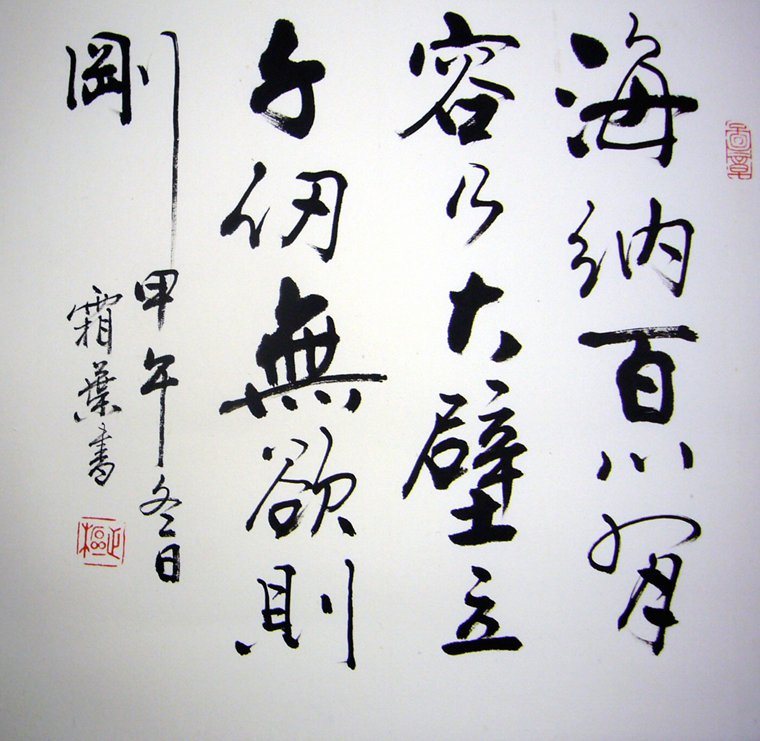 海納百川有
容乃大壁立
千仞無欲則
剛
甲午冬日
霜葉書